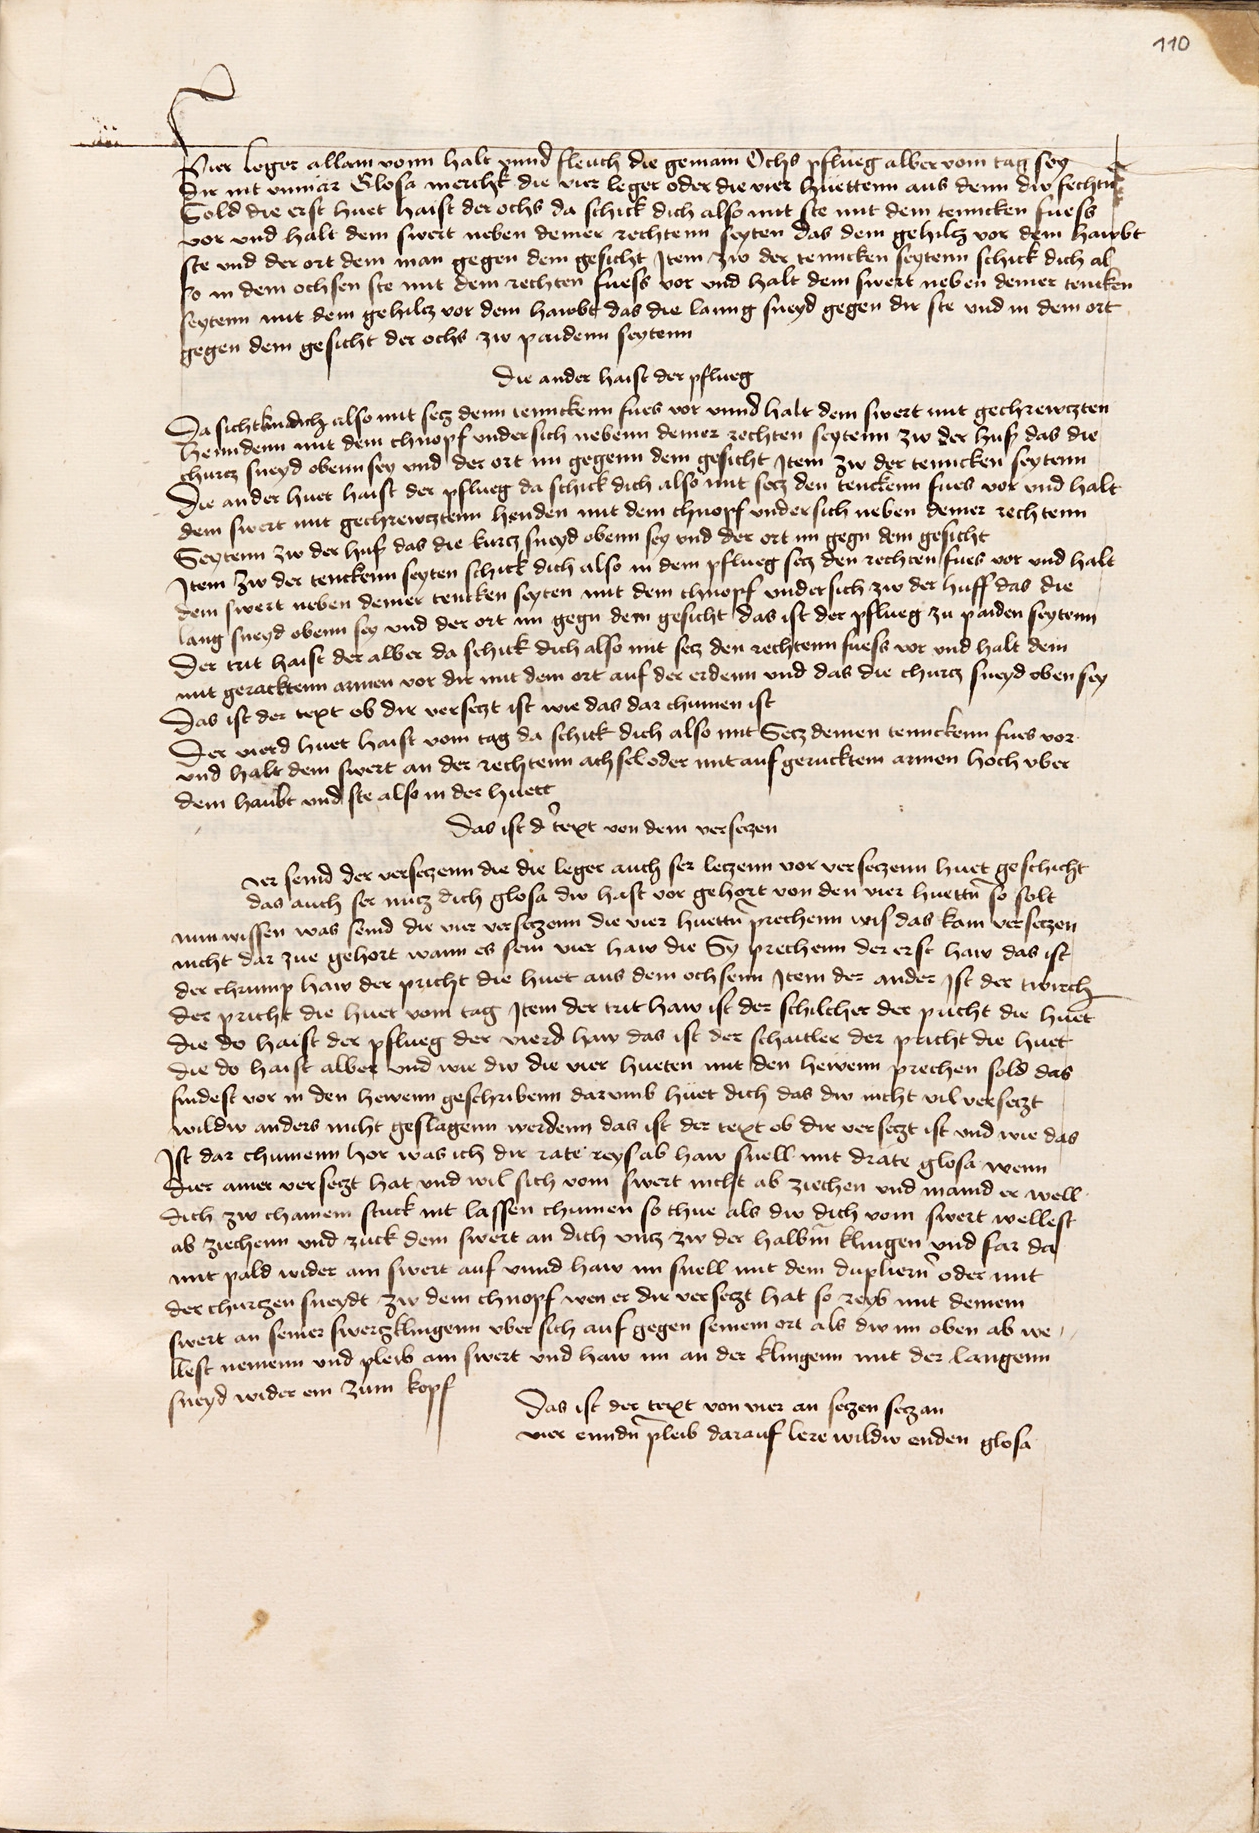 110
Vier leger allain vonn halt vnnd fleuch die gemain Ochs pflueg alber vom tag sey
dir nit vnmär Glosa merchk die vier leger oder die vier huettenn aus denn dw fechtn
Sold die erst huet haist der ochs da schick dich also mit ste mit dem tenncken fuess
vor vnd halt dein swert neben deiner rechtenn seyten das dein gehiltz vor dem hawbt
ste vnd der ort dem man gegen dem gesicht Item zw der tenncken seytenn schick dich al
so in dem ochsen ste mit dem rechten fuess vor vnd halt dein swert neben deiner tencken
seytenn mit dem gehiltz vor dem hawbt das die lanng sneyd gegen dir ste vnd in dem ort
gegen dem gesicht der ochs zw paidenn seytenn
Die ander haist der pflueg
Da dich also mit setz denn tennckenn fues vor vnnd halt dein swert mit gechrewtzten
Henndenn mit dem chnopf vndersich nebenn deiner rechten seytenn zw der huf das die
churtz sneyd obenn sey vnd der ort im gegenn dem gesicht Item zw der tenncken seytenn
Die ander huet haist der pflueg da schick dich also mit setz den tenckenn fues vor vnd halt
dein swert mit gechrewtztenn henden mit dem chnopf vndersich neben deiner rechtenn
Seytenn zw der huf das die kurtz sneyd obenn sey vnd der ort im gegn dem gesicht
Item zw der tenckenn seyten schick dich also in dem pflueg setz den rechten fues vor vnd halt
dein swert neben deiner tencken seyten mit dem chnopf vndersich zw der huff das die
lang sneyd obenn sey vnd der ort im gegn dem gesicht das ist der pflueg zu paiden seytenn
Der trit haist der alber da schick dich also mit setz den rechtenn fuess vor vnd halt dein
mit geracktenn armen vor dir mit dem ort auf der erdenn vnd das die churtz sneyd oben sey
Das ist der text ob dir versetzt ist wie das dar chumen ist
Der vierd huet haist vom tag da schick dich also mit Setz deinen tennckenn fues vor
vnd halt dein swert an der rechtenn achsel oder mit aufgerucktem armen hoch vber
dem haubt vnd ste also in der huett
Das ist d' text von dem versetzen
ier seind der versetzenn die die leger auch ser letzenn vor versetzenn huet geschicht
das auch ser mitz dich glosa dw hast vor gehort von den vier huettn so solt
nun wissen was seind die vier versetzenn die vier huettn prechenn wis das kain versetzen
nicht dar zue gehort wann es sein vier haw die Sy prechenn der erst haw das ist
der chrump haw der pricht die huet aus dem ochsenn Item der ander Ist der twirch
der pricht die huet vom tag Item der trit haw ist der schilcher der pricht die huet
die do haist der pflueg der vierd haw das ist der schaitler der pricht die huet
die do haist alber vnd wie dw die vier hueten mit den hewenn prechen sold das
findest vor in den hewenn geschribenn darumb huet dich das dw nicht vil versetzt
wildw anders nicht geslagenn werdenn das ist der text ob dir versetzt ist vnd wie das
Ist dar chumenn hor was ich dir rate reys ab haw snell mit drate glosa wenn
dier ainer versetzt hat vnd wil sich vom swert nicht ab ziechen vnd maind er well
dich zw chainem stuck nit lassen chumen so thue als dw dich vom swert wellest
ab ziechenn vnd zuck dein swert an dich vntz zw der halbm klingen vnd far da
mit pald wider am swert auf vnnd haw im snell mit dem dupliern oder mit
der churtzen sneydt zw dem chnopf wen er dir versetzt hat so reyb mit deinem
swert an seiner swertzklingenn vber sich auf gegen seinem ort als dw im oben ab we
llest nemenn vnd pleib am swert vnd haw im an der klingenn mit der langenn
sneyd wider ein zum kopf
Das ist der text von vier an setzen setz an
vier enndn pleib darauf lere wildw enden glosa